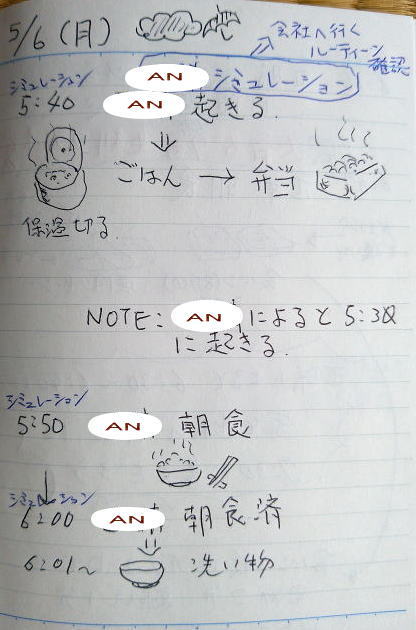 5/6 (月)
会社へ行く
ルーティーン
確認
シミュレーション
AN シミュレーション
5:40 AN 起きる.
ごはん → 弁当
保温切る.
NOTE: AN によると 5:30
に起きる.
シミュレーション
5:50 AN 朝食
シミュレーション
6:00 AN 朝食済
6:01~ 洗い物